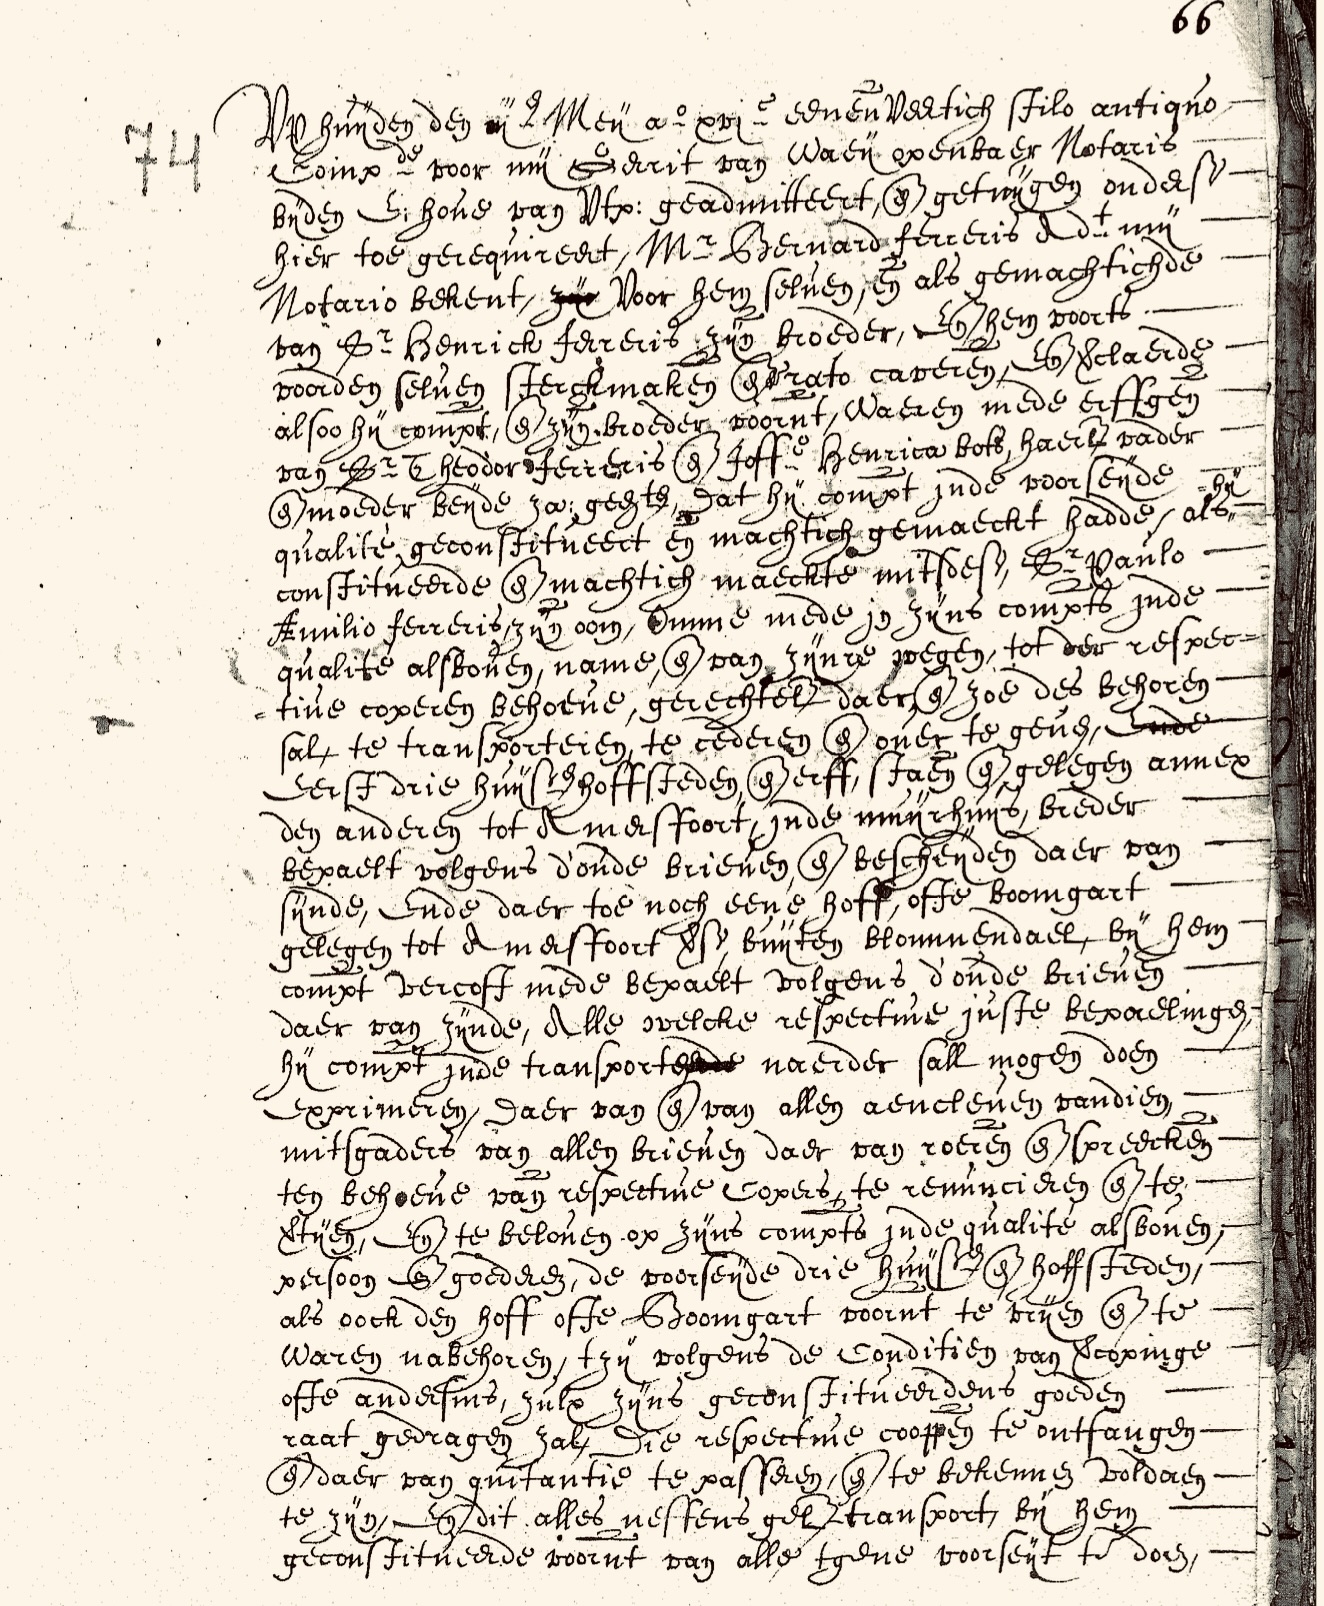 66
74
Op huijden den iij.e Meij a.o xvi.c eenenveertich stilo antiquo
Comp.de voor mij Gerrit van Waeij openbaer Notaris
bijden E: hove van Utr: geadmitteert, en getuijgen onders.
hier toe gerequireert, M.r Bernard ferreris Ad.t mij
Notario bekent, Voor hem selven, en als gemachtichde
van S.r Henrick ferreris zijn broeder, En hem voorts
voorden selven sterckmaken en rato caveren, En verclaerde
alsoo hij compt, en zijn broeder voornt, Waeren mede erffgen
van S.r Theodor ferreris en Joff.e Henrica bots, haerl. vader
en moeder beijde za: gedt., dat hij compt jnde voorseijde
qualite geconstitueert en machtich gemaeckt hadde, als hij
constitueerde en machtich maeckte mitsdes., S.r Paulo
Æmilio ferreris, zijn oom, Omme mede jn zijns compts jnde
qualite alsboven, name, en van zijnre wegen, tot der respec-
tive coperen behoeve, gerechtel. daer, en zoe des behoren
sal, te transporteren, te cederen en over te geven, Ende
Eerst drie huijsen hoffsteden, en erff, staen en gelegen annex
den anderen tot Amersfoort, jnde muijrhuijs, breder
bepaelt volgens d'oude brieven, en bescheijden daer van
sijnde, Ende daer toe noch eene hoff, offe boomgart
gelegen tot Amersfoort vs. buijten blommendael, bij hem
compt vercoft mede bepaelt volgens d'oude brieven
daer van zijnde, Alle welcke respective juste bepaelingen,
hij compt jnde transporten naerder sall mogen doen
Exprimeren, Daer van en van allen aencleven vandien,
mitsgaders van allen brieven daer van roeren en spreecken
ten behoeve van respective Copers, te renuncieren en te
vertijen, En te beloven op zijns compts jnde qualite alsboven,
persoon en goederen, de voorseijde drie huijsen en hoffsteden,
als oock den hoff offe Boomgart voornt te vrijen en te
Waren nabehoren, tzij volgens de Conditien van vercopinge
offe andersins, zulx zijns geconstitueerdens goeden
raat gedragen zal, Die respective cooppen te ontfangen
en daer van quitantie te passeren, en te bekennen voldaen
te zijn, En dit alles neffens gel. transport, bij hem
geconstitueerde voornt van alle tgene voorseijt te doen,